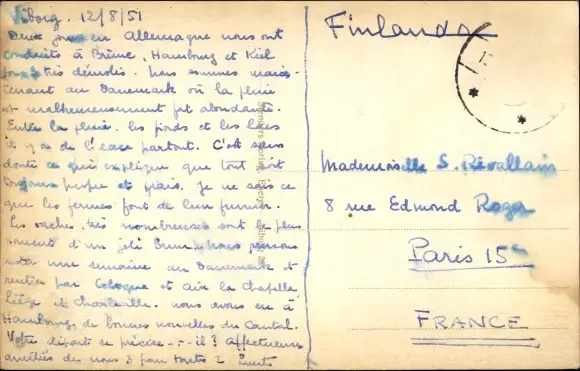 Viborg. 12/8/51
Deux jours en Allemagne nous ont
conduits à Brême, Hambourg et Kiel
très démolis. Nous sommes main-
tenant au Danemark où la pluie
est malheureusement fort abondante.
Entre la pluie, les fjords et les lacs
il y a de l'eau partout. C'est sans
doute ce qui explique que tout soit
toujours propre et frais. Je ne sais ce
que les fermes font de leur fumier.
Les vaches, très nombreuses sont le plus
souvent d'un joli brun. Nous pensons
rester une semaine au Danemark et
rentrer par Cologne et Aix la Chapelle
Liège et Charleville. Nous avons eu à
Hambourg de bonnes nouvelles du Cantal.
Votre départ se précise - - il ? Affectueuses
amitiés de nous 3 pour toutes 2
Finlande
Mademoiselle S. Révallain
8 rue Edmond Roger
Paris 15e
FRANCE